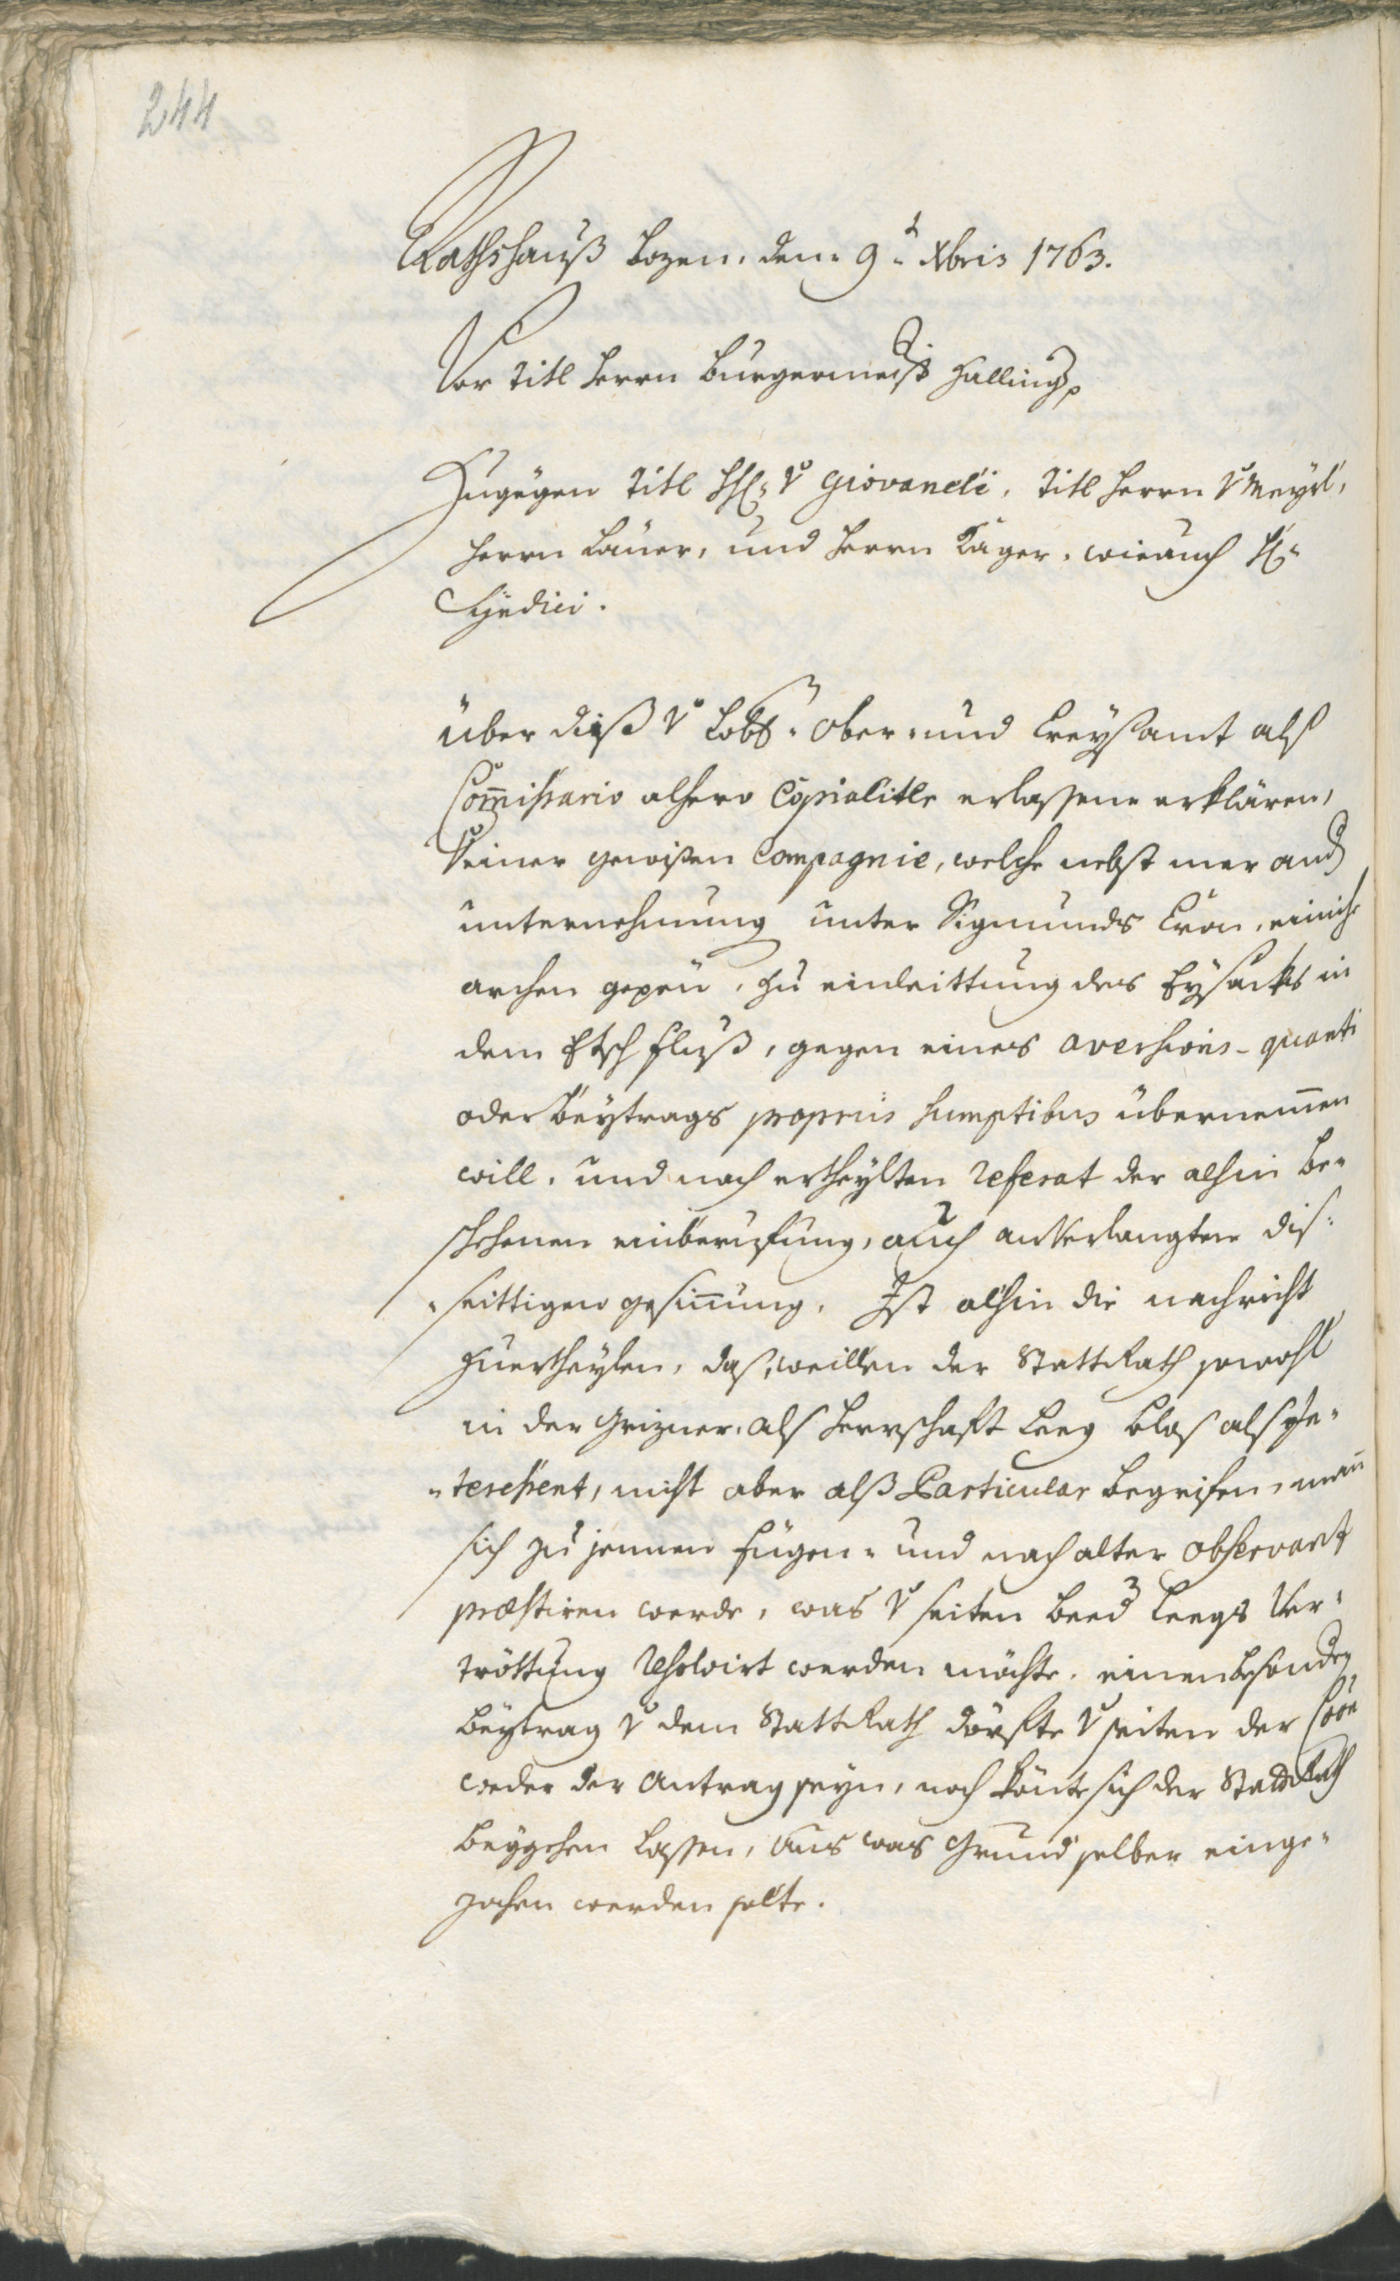 244
Rathshauß Bozen, den 9.t Xbris 1763.
Vor Titl Herrn Burgermeister Hallinger
Zugegen Titl HH: v Giovaneli, Titl Herrn v Mayrl,
Herrn Lauer, und Herrn Kager, wie auch H:
Syndici.
über diß v Lobl. Ober- und Creysamt als
Commissario alhero Copialiter erlassene erklären,
Seiner gewißen Compagnie, welche nebst mer and
unternehmung unter Sigmunds Cron, einiche
archen gepeü, zu einleittung des Eysacks in
dem Etsch fluß, gegen eines aversions-quanti
oder Beytrags propriis sumptibus übernemen
will, und nach ertheylten Referat der alhin be-
schehenen einberufung, auch anverlangten dis-
seittigen gesinnung. Ist alhin die nachricht
zuertheylen, daß, weillen der StattRath sowohl
in der Grizner, als Herrschaft Leeg blos als In-
teressent, nicht aber alß Particular begrifen, man
sich zu jennen fügen- und nach alter observanz
præstiren werde, was v seiten beeder Leegs Ver-
tröttung resolvirt werden möchte. einen besonderen
Beytrag v dem StattRath dörfte v seiten der Coon
weder der Antrag seyn, noch könte sich der StattRath
beygehen lassen, aus was Grund selber einge-
zochen werden solte.